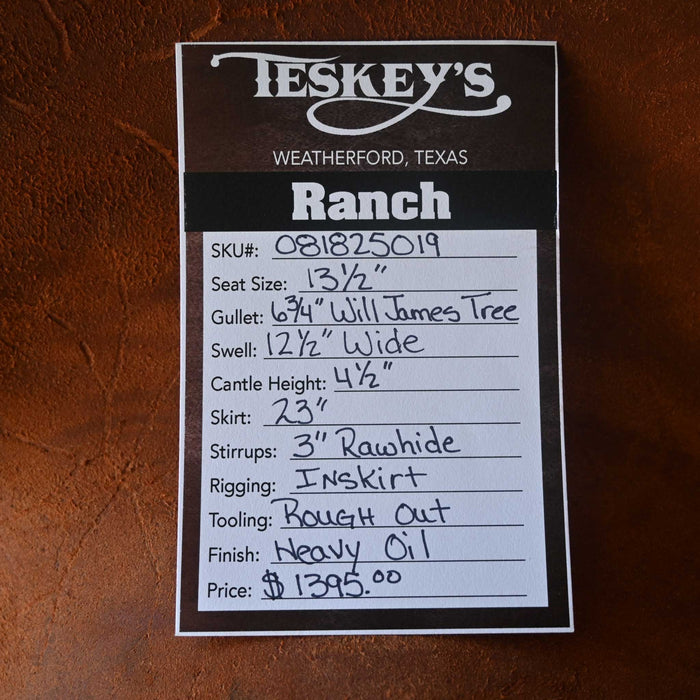 TESKEY'S
WEATHERFORD, TEXAS
Ranch
SKU#: 081825019
Seat Size: 13½"
Gullet: 6¾" Will James Tree
Swell: 12½" Wide
Cantle Height: 4½"
Skirt: 23"
Stirrups: 3" Rawhide
Rigging: INskirt
Tooling: ROUGH Out
Finish: Heavy Oil
Price: $1395.00